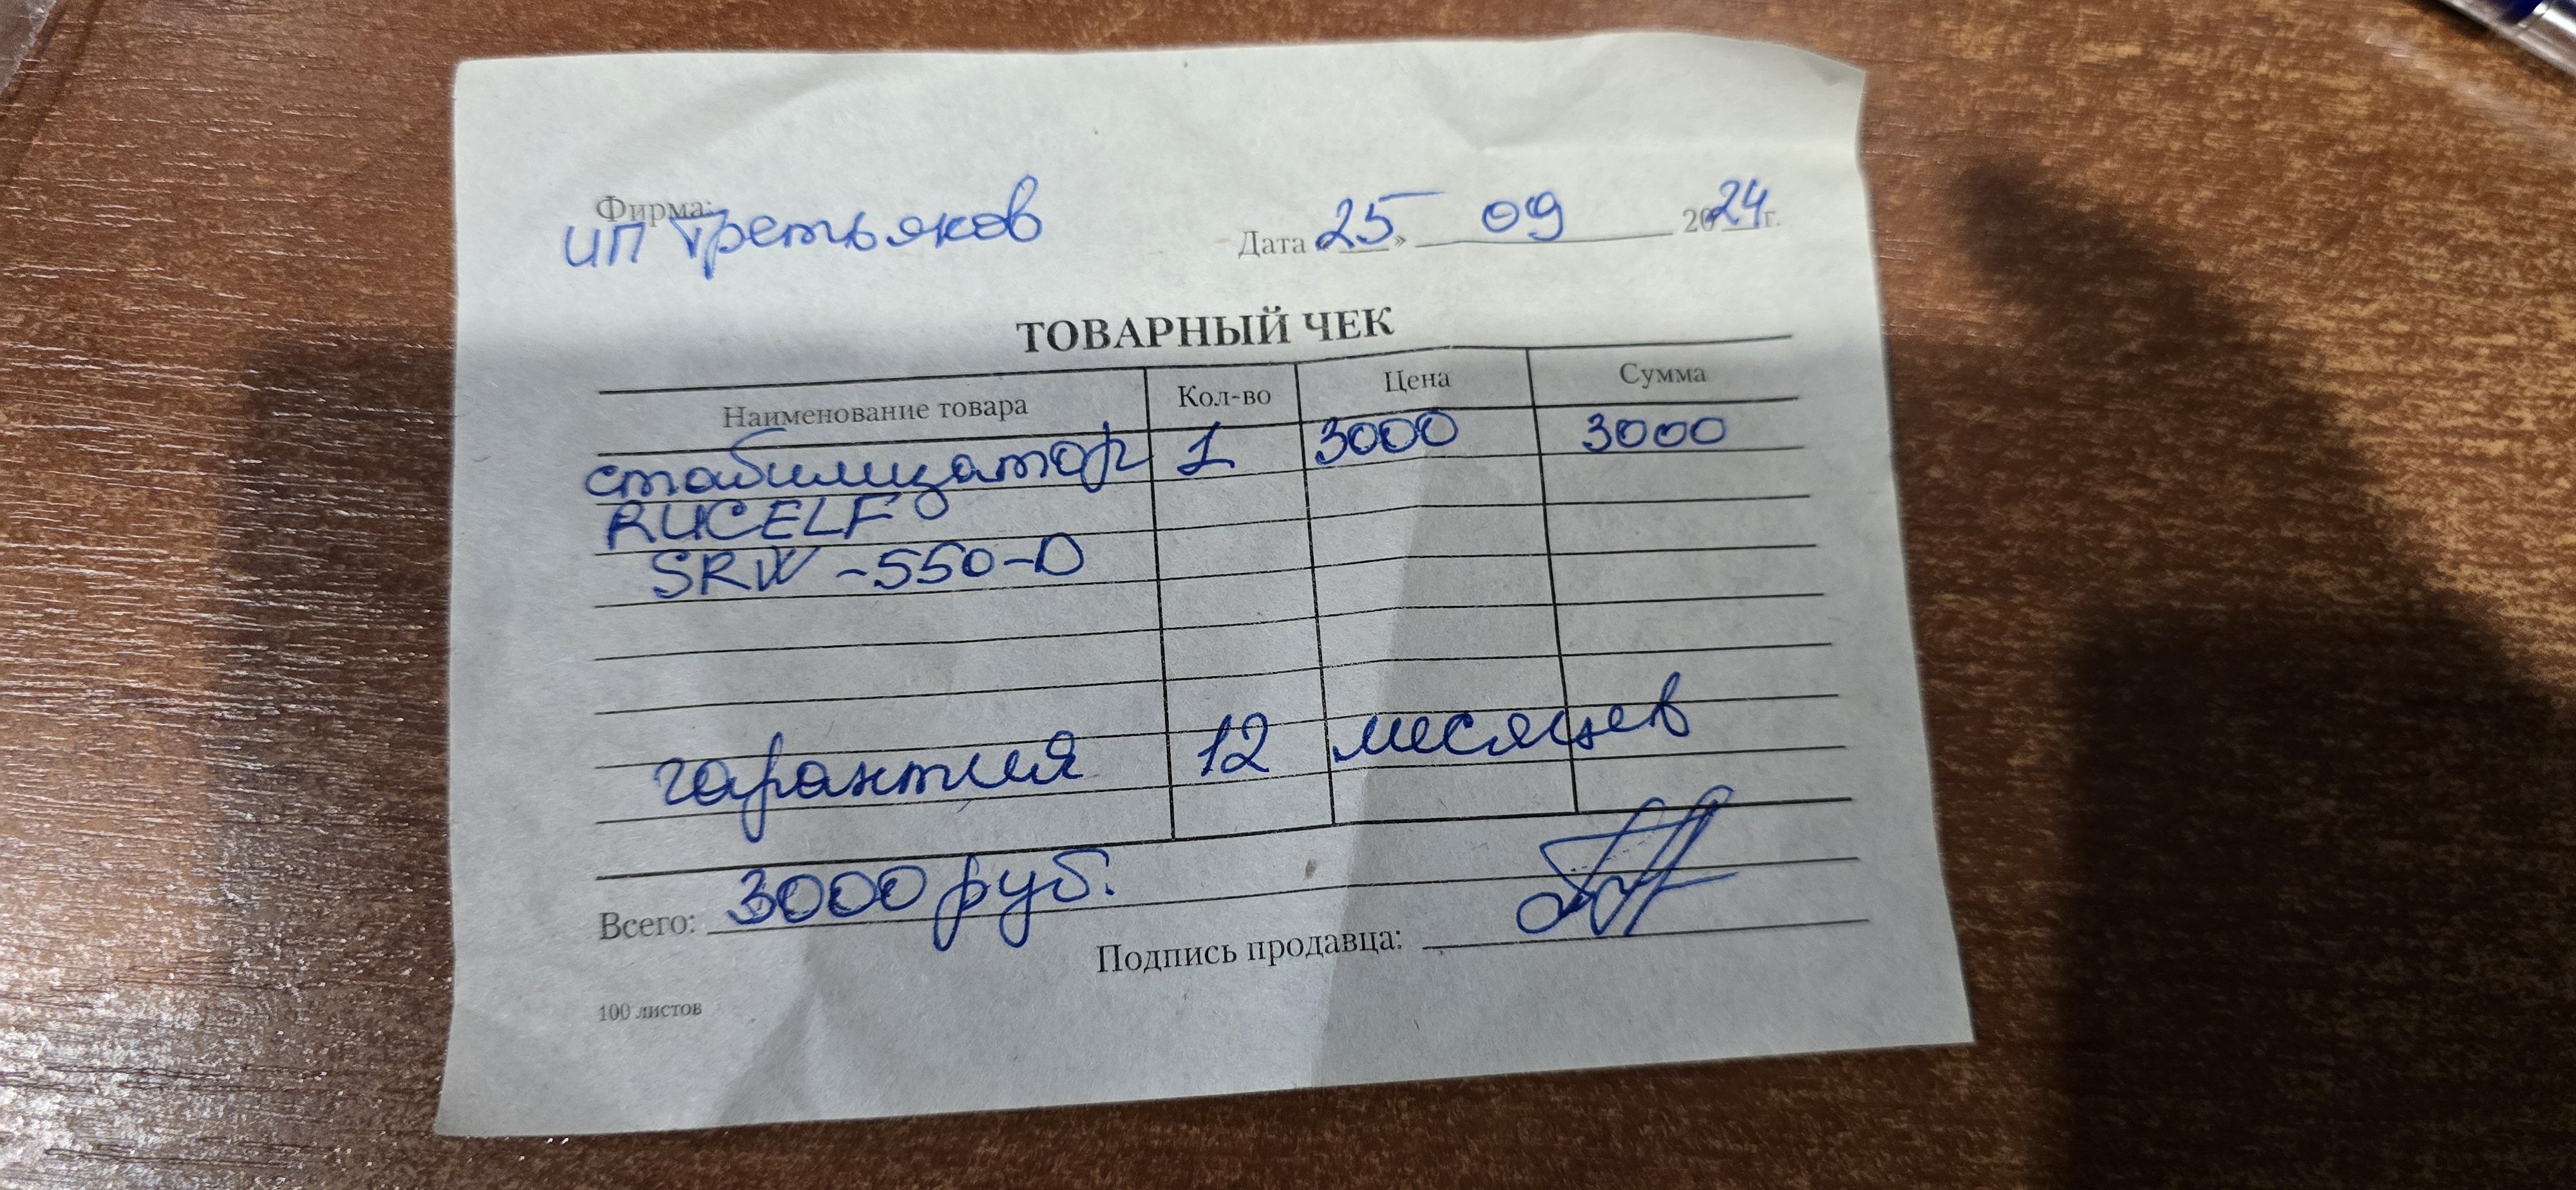 Фирма:
ИП Третьяков
Дата «25» 09 2024г.
ТОВАРНЫЙ ЧЕК
Наименование товара Кол-во Цена Сумма
стабилизатор 1 3000 3000
RUCELF
SRW-550-D
гарантия 12 месяцев
Всего: 3000 руб.
Подпись продавца:
100 листов